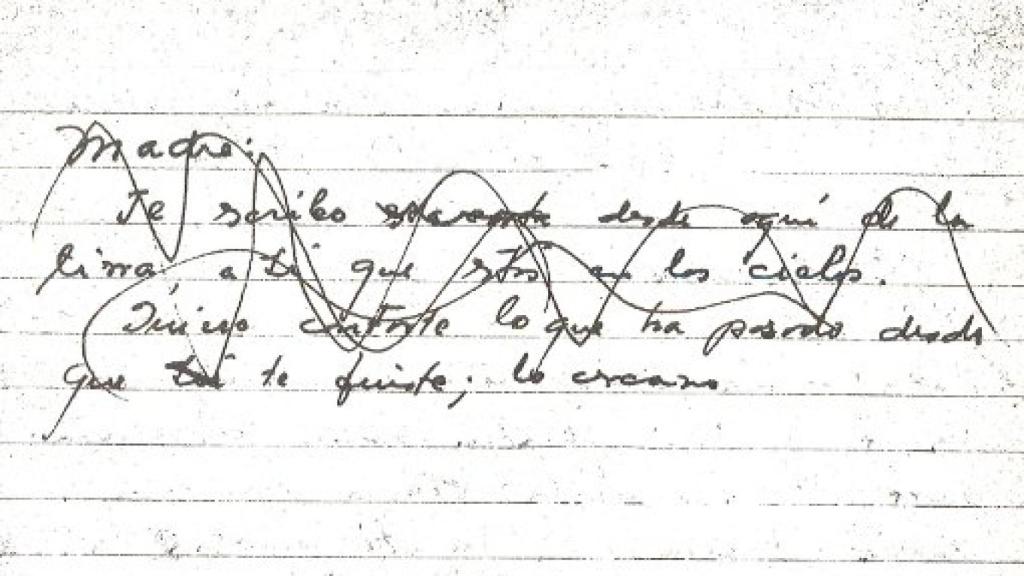 Madre:
Te scribo desde aquí de la
tierra a ti que stás en los cielos.
Quiero contarte lo que ha pasado desde
que te fuiste; lo cercano